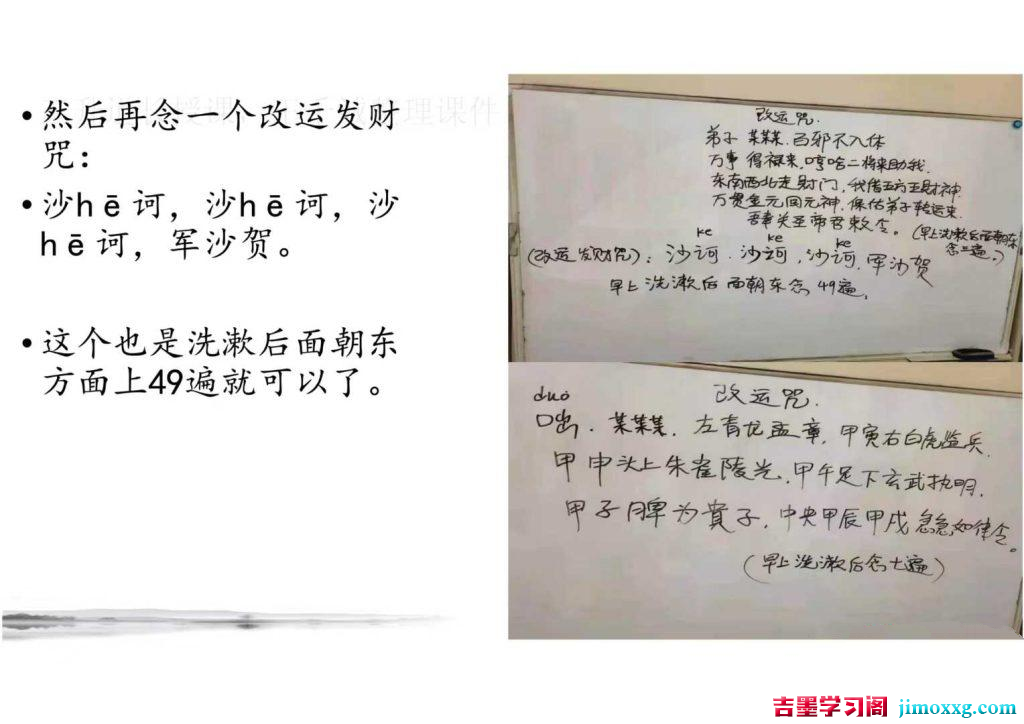 • 然后再念一个改运发财
咒：
• 沙hē诃，沙hē诃，沙
hē诃，军沙贺。
• 这个也是洗漱后面朝东
方面上49遍就可以了。
改运咒.
弟子 某某某. 百邪不入体
万事 得福来, 哼哈二将来助我.
东南西北走财门, 我借五方五财神.
万贯金元回元神. 保佑弟子转运来.
吾奉关圣帝君敕令。(早上洗漱后面朝东
念三遍。)
ke ke ke
(改运发财咒): 沙诃. 沙诃, 沙诃, 军沙贺
早上洗漱后面朝东念49遍.
duō
咄. 某某某. 左青龙孟章. 甲寅右白虎监兵.
甲申头上朱雀陵光. 甲午足下玄武执明.
甲子脾为貴子. 中央甲辰甲戌 急急如律令。
改运咒.
(早上洗漱后念七遍)
吉墨学习阁 jimoxxg.com